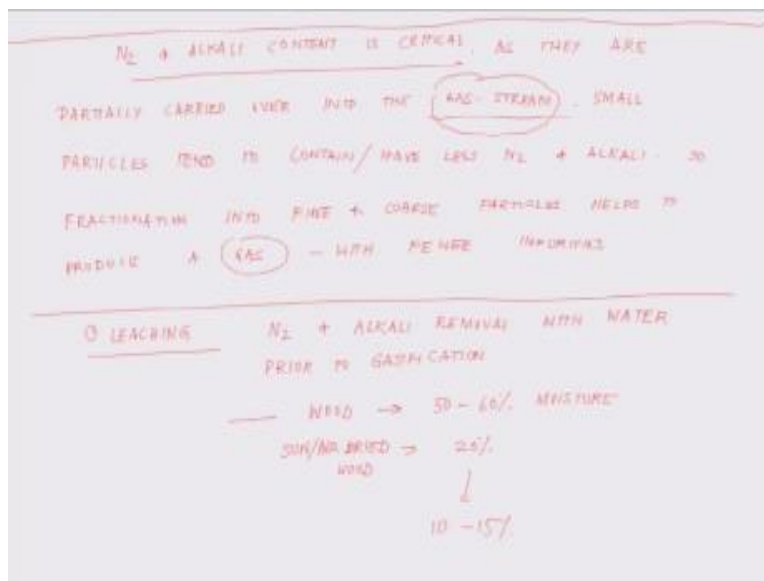 N2 + ALKALI CONTENT IS CRITICAL, AS THEY ARE
PARTIALLY CARRIED OVER INTO THE GAS-STREAM. SMALL
PARTICLES TEND TO CONTAIN/HAVE LESS N2 + ALKALI. SO
FRACTIONATION INTO FINE + COARSE PARTICLES HELPS TO
PRODUCE A GAS - WITH IMPURITIES
① LEACHING N2 + ALKALI REMOVAL WITH WATER
PRIOR TO GASIFICATION
WOOD → 50-60% MOISTURE
SUN/AIR DRIED → 20%
WOOD
10-15%